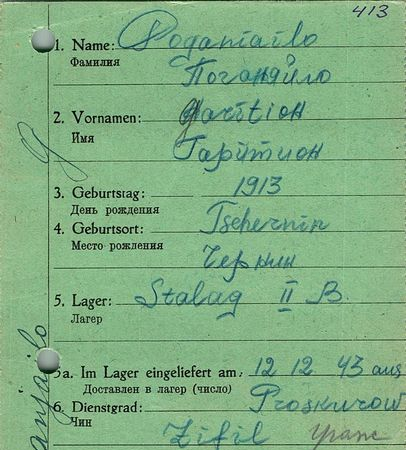 413
1. Name: Poganiailo
Фамилия
Поганяйло
2. Vornamen: Garitión
Имя
Гаритион
3. Geburtstag: 1913
День рождения
4. Geburtsort: Tschernin
Место рождения
Чернин
5. Lager: Stalag II B
Лагерь
5a. Im Lager eingeliefert am: 12 12 43 aus
Доставлен в лагерь (число)
6. Dienstgrad: Proskurow
Чин
Zifil